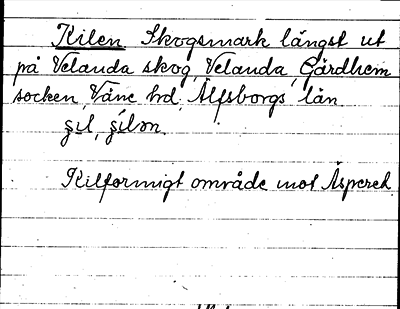 Kilen Skogsmark längst ut
på Velanda skog, Velanda, Gärdhem
socken, Väne hd, Älfsborgs län
ʂil, ʂilən.
Kilformigt område mot Åspered